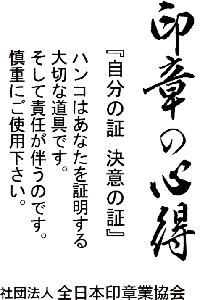 印章の心得
『自分の証 決意の証』
ハンコはあなたを証明する
大切な道具です。
そして責任が伴うのです。
慎重にご使用下さい。
社団法人 全日本印章業協会